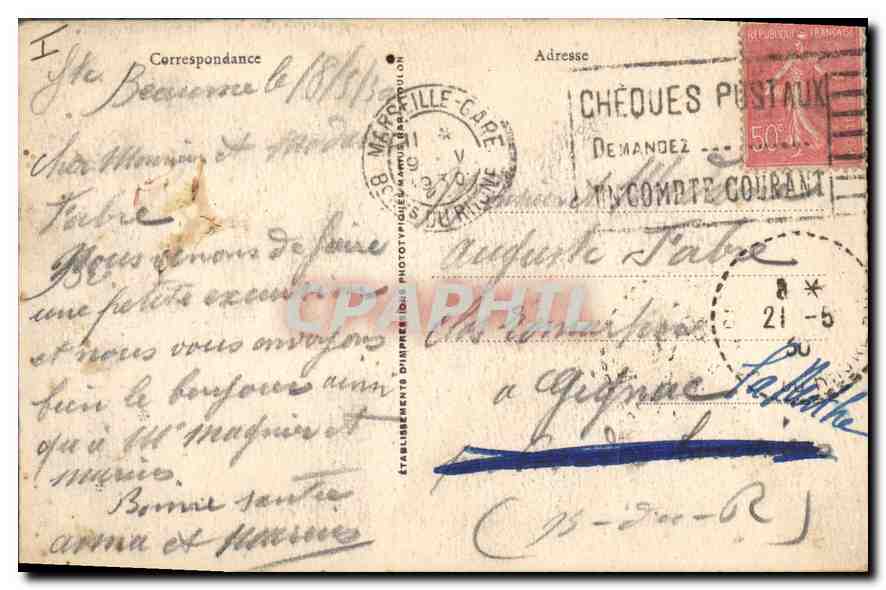 I
Correspondance
Ste Beaume le 18/5/30
Cher Monsieur et Madame
Fabre
Nous venons de faire
une petite excursion
et nous vous envoyons
bien le bonjour ainsi
qu'à Mr Magnier et
Marius
Bonne santé
et Marius
ÉTABLISSEMENTS D'IMPRESSIONS PHOTOTYPIQUES MARIUS BAR, TOULON
Adresse
MARSEILLE-GARE
BCHES DU RHONE
CHÈQUES POSTAUX
DEMANDEZ ........
UN COMPTE COURANT
REPUBLIQUE FRANÇAISE
50c
Auguste Fabre
Clos
a Gignac
La Mothe
(B-du-R)
8 *
21 -5
30
CPAPHIL